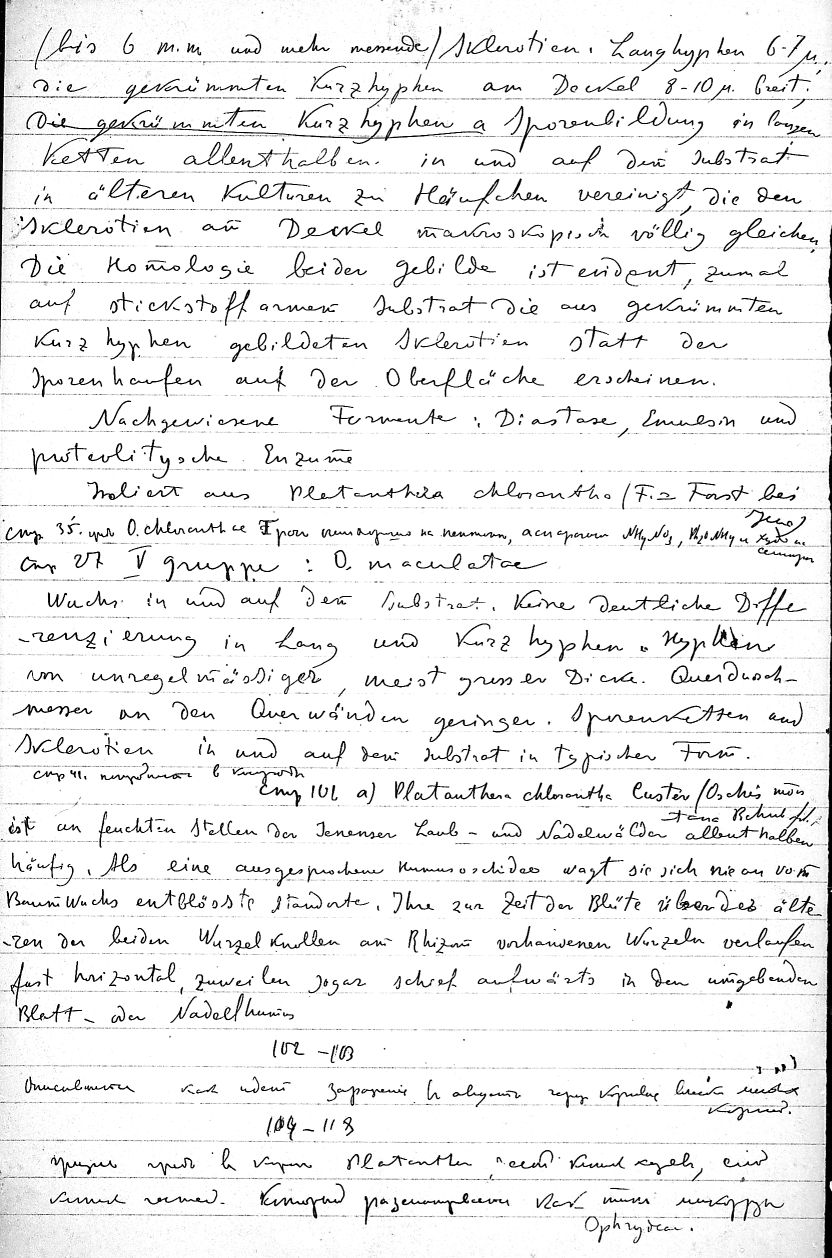 (bis 6 m.m. und mehr messende) Sklerotien. Langhyphen 6-7 μ,
die gekrümmten Kurzhyphen am Deckel 8-10 μ. breit;
die gekrümmten Kurzhyphen a Sporenbildung in langen
Ketten allenthalben. in und auf dem Substrat
in älteren Kulturen zu Häufchen vereinigt, die den
Sklerotien am Deckel makroskopisch völlig gleichen.
Die Homologie beider Gebilde ist evident, zumal
auf stickstoffarmem Substrat die aus gekrümmten
Kurzhyphen gebildeten Sklerotien statt der
Sporenhaufen auf der Oberfläche erscheinen.
Nachgewiesene Fermente: Diastase, Emulsin und
proteolitysche Enzyme
Isoliert aus Platanthera chlorantha (F. = Forst bei
Jena)
стр 35. O. chloranthae на пептоне, аспарагин NH4NO3,
стр 27 V gruppe: O. maculatae
Wuchs in und auf dem Substrat. Keine deutliche Diffe
-renzierung in Lang und Kurzhyphen. Hyphen
von unregelmässiger, meist grosser Dicke. Querdurch-
messer an den Querwänden geringer. Sporenketten und
Sklerotien in und auf dem Substrat in typischer Form.
стр 41. в
стр 101 a) Platanthera chlorantha Custer (Orchis mon
tana
ist an feuchten Stellen der Jenenser Laub- und Nadelwälder allenthalben
häufig. Als eine ausgesprochene Humusorchidee wagt sie sich nie an vom
Baumwuchs entblösste Standorte. Ihre zur Zeit der Blüte über der älte-
-ren der beiden Wurzelknollen am Rhizom vorhandenen Wurzeln verlaufen
fast horizontal, zuweilen sogar schief aufwärts in den umgebenden
Blatt- oder Nadelhumus
102 - 103
Описывается как идет заражение
корней.
104 - 118
гриб в корни Platanthera
как тип микоризы
Ophrydeae.